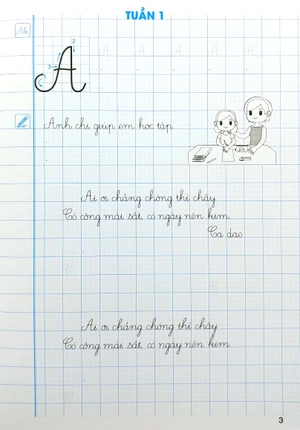 TUẦN 1
Ab
A A A A A A
Anh chị giúp em học tập.
Ai ơi chẳng chóng thì chầy
Có công mài sắt, có ngày nên kim.
Ca dao
Ai ơi chẳng chóng thì chầy
Có công mài sắt, có ngày nên kim.
3